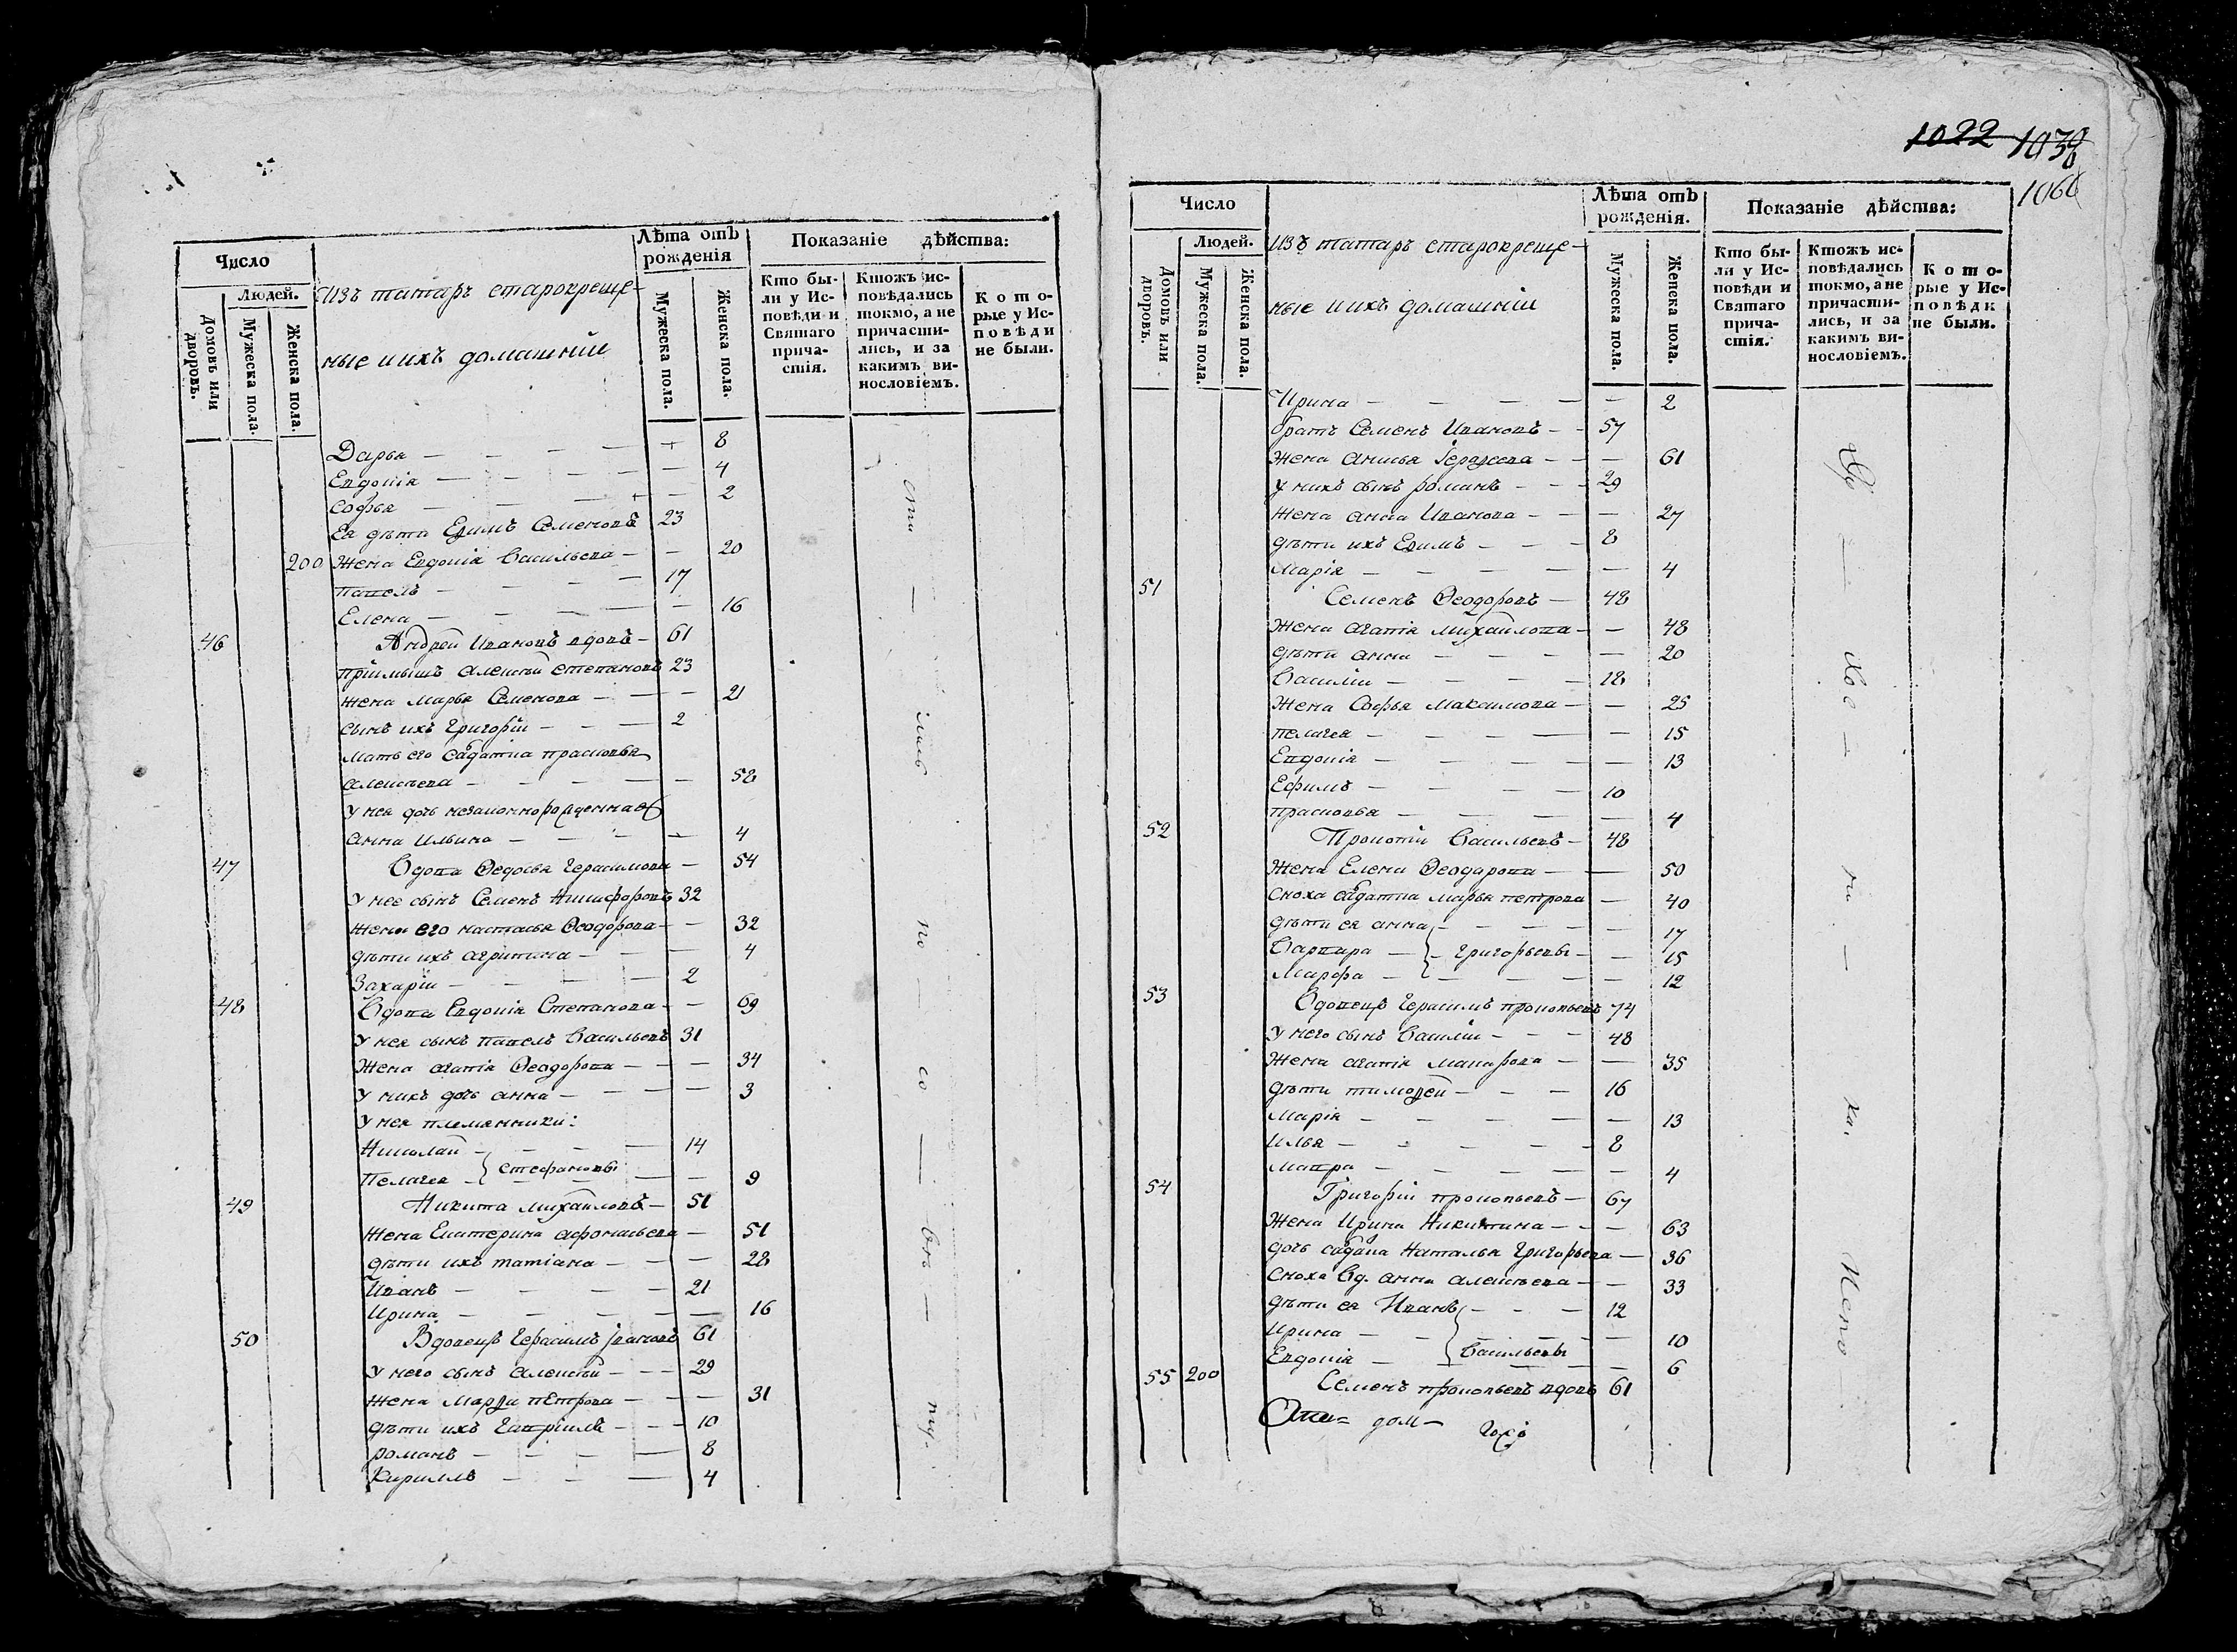 Число
Людей.
Домовъ или дворовъ.
Мужеска пола.
Женска пола.
Изъ татаръ старокреще-
ные и ихъ домашнїи
Лѣта отъ рожденія
Мужеска пола.
Женска пола.
Показаніе дѣйства:
Кто бы-
ли у Ис-
повѣди и
Святаго
прича-
стія.
Ктожъ ис-
повѣдались
токмо, а не
причасти-
лись, и за
какимъ ви-
нословіемъ.
Кото-
рые у Ис-
повѣди
не были.
Дарья — 8
Евдокія — 4
Софья — 2
Ея дѣти Ефимъ Семеновъ 23
200 Жена Евдокія Васильева — 20
Павелъ — 17
Елена — 16
46 Андрей Ивановъ вдовъ — 61
Пріимышъ Алексѣй Степановъ 23
Жена Марья Семенова — 21
Сынъ ихъ Григорїй — 2
Мать его салдатка Прасковья
Алексѣева — 58
У нея дочь незаконнорожденная
Анна Ильина — 4
47 Вдова Ѳедосья Герасимова — 54
У нее сынъ Семенъ Никифоровъ 32
Жена его Настасья Ѳеодорова — 32
дѣти ихъ Агрипина — 4
Захарїй — 2
48 Вдова Евдокія Степанова — 69
У нея сынъ Павелъ Васильевъ 31
Жена Агапія Ѳеодорова — 34
У нихъ дочь Анна — 3
У нея племянники:
Николай — 14
Стефановы
Пелагея — 9
49 Никита Михайловъ — 51
Жена Екатерина Афонасьева — 51
дѣти ихъ Татіана — 28
Иванъ — 21
Ирина — 16
50 Вдовецъ Герасимъ Ивановъ 61
У него сынъ Алексѣй — 29
Жена Марѳа Петрова — 31
дѣти ихъ Гавріилъ — 10
Романъ — 8
Кириллъ — 4
1022 1038
1060
Число
Людей.
Домовъ или дворовъ.
Мужеска пола.
Женска пола.
Изъ татаръ старокреще-
ные и ихъ домашнїи
Лѣта отъ рожденія.
Мужеска пола.
Женска пола.
Показаніе дѣйства:
Кто бы-
ли у Ис-
повѣди и
Святаго
прича-
стія.
Ктожъ ис-
повѣдались
токмо, а не
причасти-
лись, и за
какимъ ви-
нословіемъ.
Кото-
рые у Ис-
повѣди
не были.
Ирина — 2
братъ Семенъ Ивановъ — 57
Жена Анисья — 61
У нихъ сынъ Романъ — 29
Жена Анна Иванова — 27
дѣти ихъ Ефимъ — 8
Марія — 4
51 Семенъ Ѳеодоровъ — 48
Жена Агапія Михайлова — 48
дѣти Анна — 20
Василїй — 18
Жена Софья Максимова — 25
Пелагея — 15
Евдокія — 13
Ефимъ — 10
Прасковья — 4
52 Прокопїй Васильевъ — 48
Жена Елена Ѳеодорова — 50
Сноха салдатка Марья Петрова — 40
дѣти ея Анна — 17
Варвара — Григорьевы — 15
Марфа — 12
53 Вдовецъ Герасимъ Прокопьевъ 74
У него сынъ Василїй — 48
Жена Агапія Макарова — 35
дѣти Тимоѳей — 16
Марія — 13
Илья — 8
Мавра — 4
54 Григорїй Прокопьевъ — 67
Жена Ирина Никитина — 63
дочь Наталья Григорьева — 36
Сноха Вд. Анна Алексѣева — 33
дѣти ея Иванъ — 12
Ирина — 10
Васильевы
Евдокія — 6
55 200 Семенъ Прокопьевъ вдовъ 61
дом —